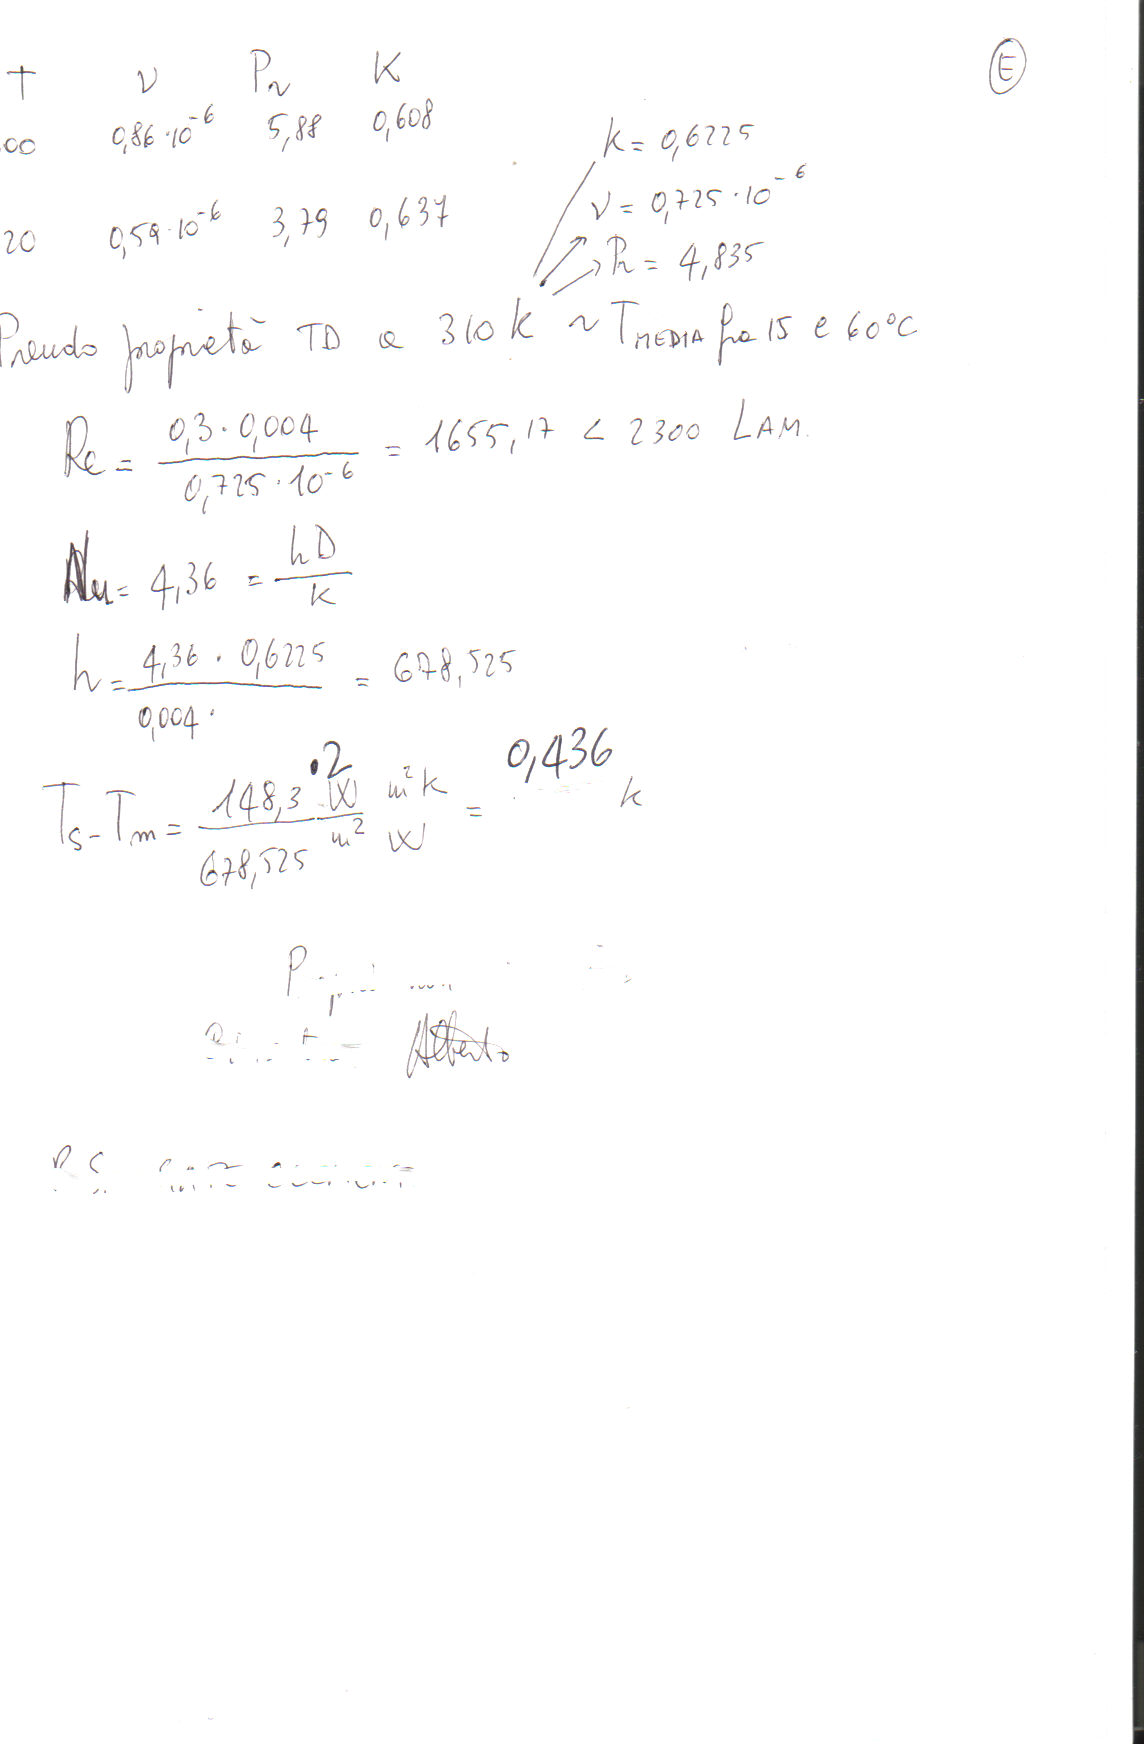 E
T ν Pr K
00 0,86·10⁻⁶ 5,88 0,608
k = 0,6225
ν = 0,725·10⁻⁶
20 0,59·10⁻⁶ 3,79 0,637
Pr = 4,835
Prendo proprietà TD a 310 k ~ TMEDIA fra 15 e 60°C
Re = 0,3 · 0,004 / 0,725 · 10⁻⁶ = 1655,17 < 2300 LAM.
Nu = 4,36 = hD / k
h = 4,36 · 0,6225 / 0,004 · = 678,525
Ts - Tm = 148,3 ·2 / 678,525 W / m² m²k / W = 0,436 k
Alberto